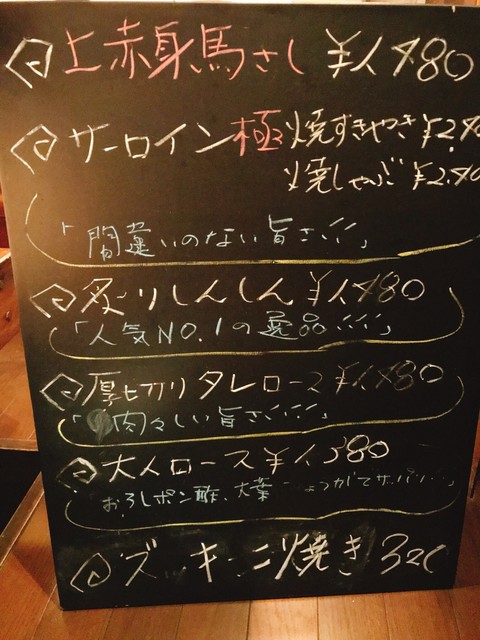 上赤身馬さし ¥1480
サーロイン極 焼すきやき ¥2.4
焼しゃぶ ¥2.4
「間違いのない旨さ!!!」
炙りしんしん ¥1,480
「人気NO.1の逸品!!!」
厚切りタレロース ¥1,480
「肉々しい旨さ!!!」
大人ロース ¥1,380
おろしポン酢、大葉、しょうがでサッパリ…」
ズッキーニ焼き 320